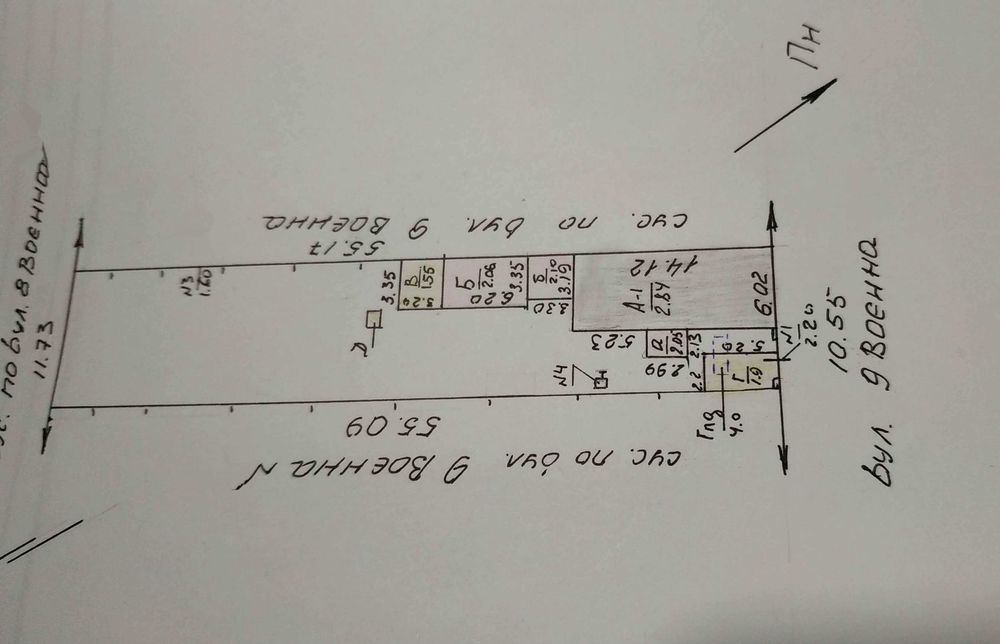 с. по вул. 8 Военна
11.73
Пн
сус. по вул. 9 Военна
55.17
N3
1.60
3.35
В
1.55
5.20
Б
2.06
6.20
3.35
б
2.10
3.19
3.30
14.12
А-1
2.84
6.02
5.23
а
2.05
2.13
2.99
5.20
Г
1.9
2.2
Гпд
4.0
N1
2.20
Д
N4
55.09
сус. по вул. 9 Военна N
10.55
вул. 9 Военна